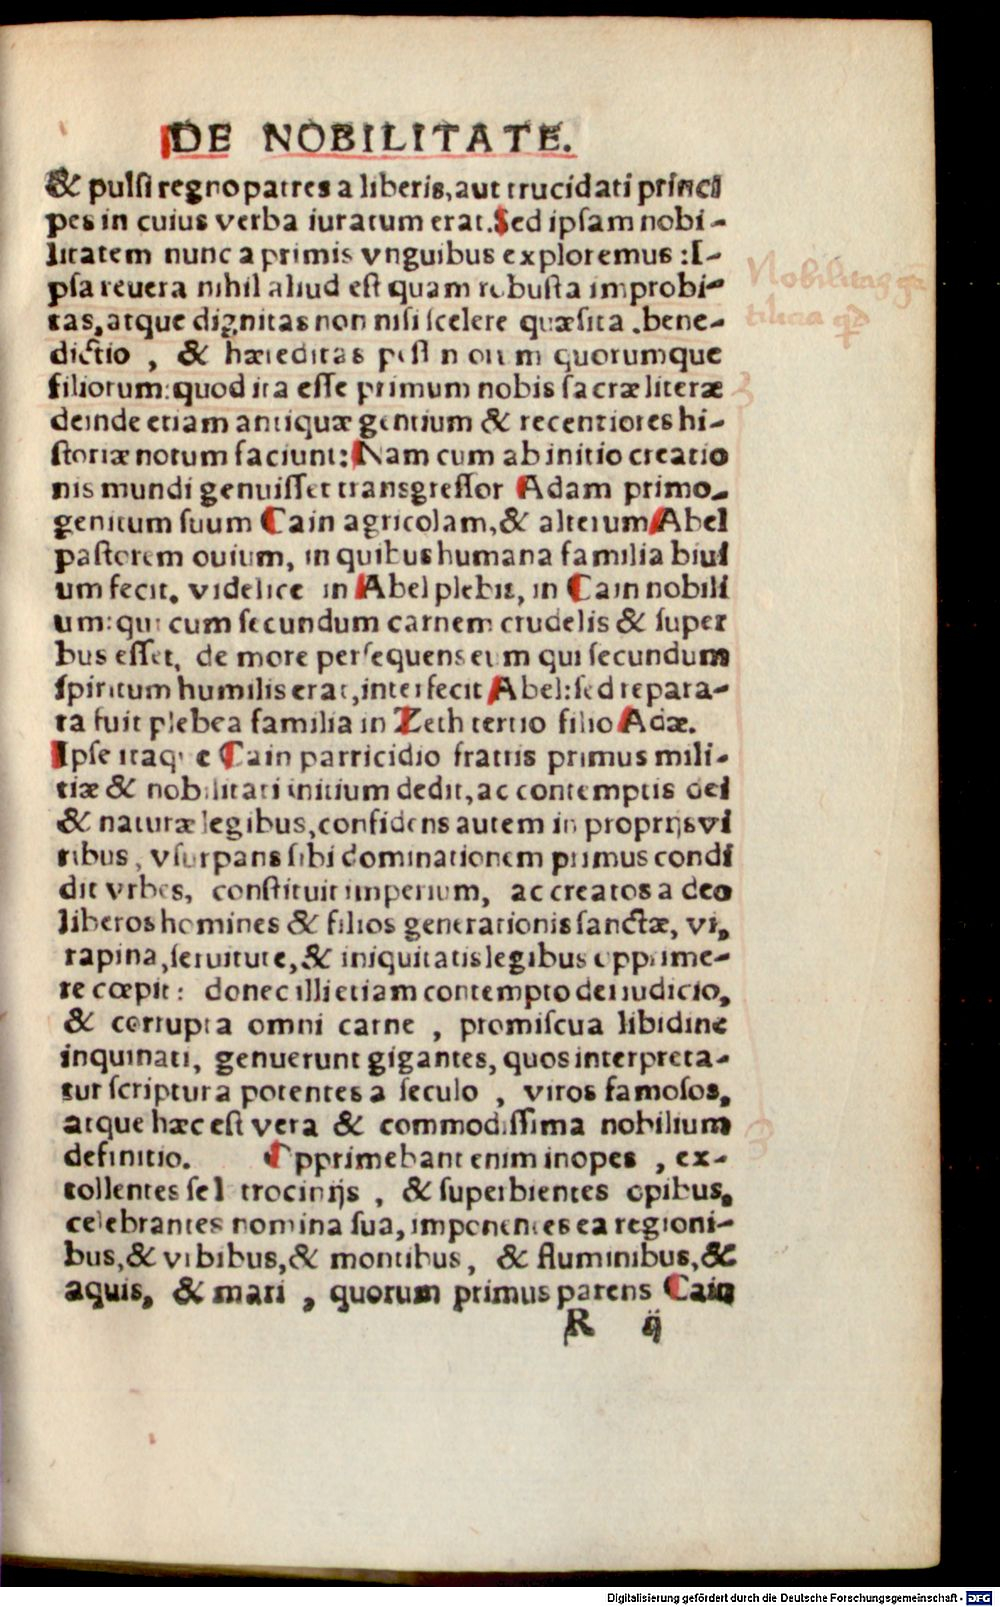 DE NOBILITATE.
& pulsi regno patres a liberis, aut trucidati princi
pes in cuius verba iuratum erat. Sed ipsam nobi-
litatem nunc a primis vnguibus exploremus: I-
psa reuera nihil aliud est quam robusta improbi-
tas, atque dignitas non nisi scelere quæsita. bene-
dictio, & hæreditas quorumque
filiorum: quod ita esse primum nobis sacræ literæ
deinde etiam antiquæ gentium & recentiores hi-
storiæ notum faciunt: Nam cum ab initio creatio
nis mundi genuisset transgressor Adam primo-
genitum suum Cain agricolam, & alterum Abel
pastorem ouium, in quibus humana familia biui
um fecit. videlice in Abel plebis, in Cain nobili
um: qui cum secundum carnem crudelis & super
bus esset, de more persequens eum qui secundum
spiritum humilis erat, interfecit Abel: sed repara-
ta fuit plebea familia in Zeth tertio filio Adæ.
Ipse itaque Cain parricidio fratris primus mili-
tiæ & nobilitati initium dedit, ac contemptis dei
& naturæ legibus, confidens autem in proprijs vi
ribus, vsurpans sibi dominationem primus condi
dit vrbes, constituit imperium, ac creatos a deo
liberos homines & filios generationis sanctæ, vi,
rapina, seruitute, & iniquitatis legibus opprime-
re cœpit: donec illi etiam contempto dei iudicio,
& corrupta omni carne, promiscua libidine
inquinati, genuerunt gigantes, quos interpreta-
tur scriptura potentes a seculo, viros famosos,
atque hæc est vera & commodissima nobilium
definitio. Opprimebant enim inopes, ex-
tollentes se trocinijs, & superbientes opibus,
celebrantes nomina sua, imponentes ea regioni-
bus, & vibibus, & montibus, & fluminibus, &
aquis, & mari, quorum primus parens Cain
R ij
Nobilitas
Digitalisierung gefördert durch die Deutsche Forschungsgemeinschaft - DFG